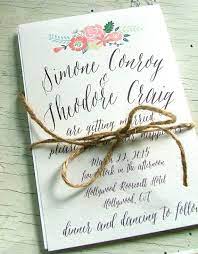 Simone Conroy
&
Theodore Craig
are getting married
please
March 22, 2015
two o'clock in the afternoon
Hollywood Roosevelt Hotel
Hollywood, CA
dinner and dancing to follow